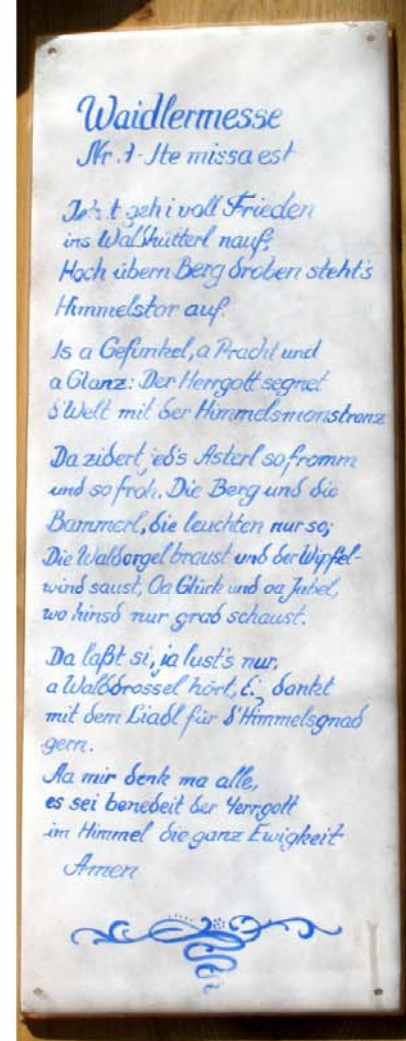 Waidlermesse
Nr. 7 - Ite missa est
Jetzt geh i voll Frieden
ins Waldhütterl nauf;
Hoch übern Berg droben steht's
Himmelstor auf.
Is a Gefunkel, a Pracht und
a Glanz: Der Herrgott segnet
d'Welt mit der Himmelsmonstranz
Da zidert jed's Asterl so fromm
und so froh. Die Berg und die
Bammerl, die leuchten nur so;
Die Waldorgel braust und der Wipfel-
wind saust, Oa Glück und oa Jubel,
wo hinsd nur grad schaust.
Da laßt si, ja lust's nur,
a Walddrossel hörn, dankt
mit dem Liadl für d'Himmelsgnad
gern.
Aa mir denk ma alle,
es sei benedeit der Herrgott
im Himmel die ganz Ewigkeit
Amen